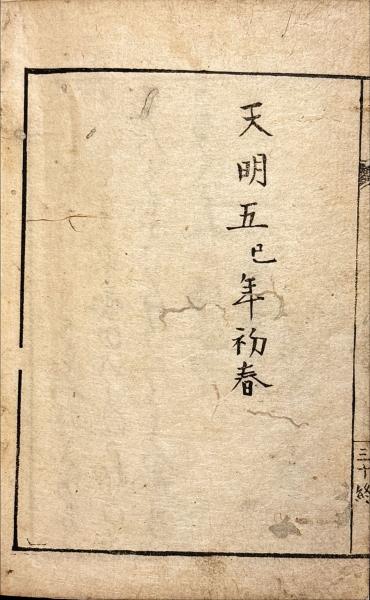 天明五巳年初春
三十終